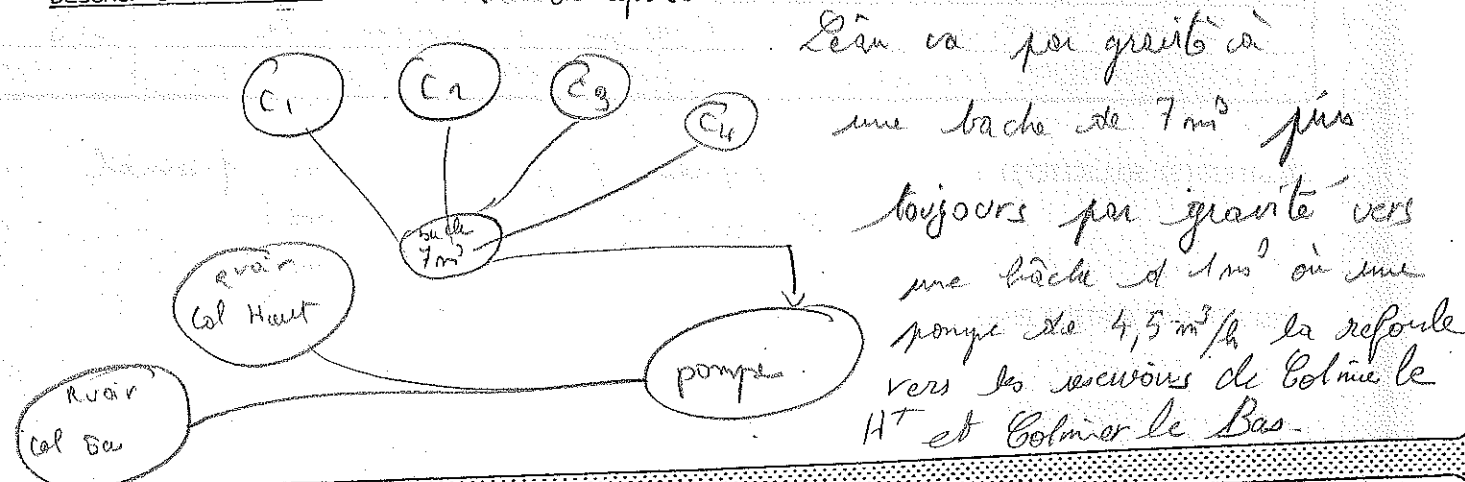 C1
C2
C3
C4
bache
7m³
Rvoir
Col Haut
Rvoir
Col Bas
pompe
L'eau va par gravité à
une bache de 7 m³ puis
toujours par gravité vers
une bâche d 1m³ où une
pompe de 4,5 m³/h la refoule
vers les reservoirs de Colmier le
HT et Colmier le Bas.